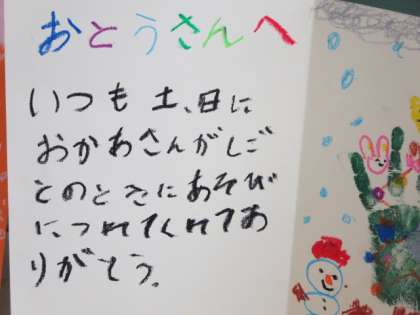 おとうさんへ
いつも土、日に
おかあさんがしご
とのときにあそび
につれてくれてあ
りがとう。